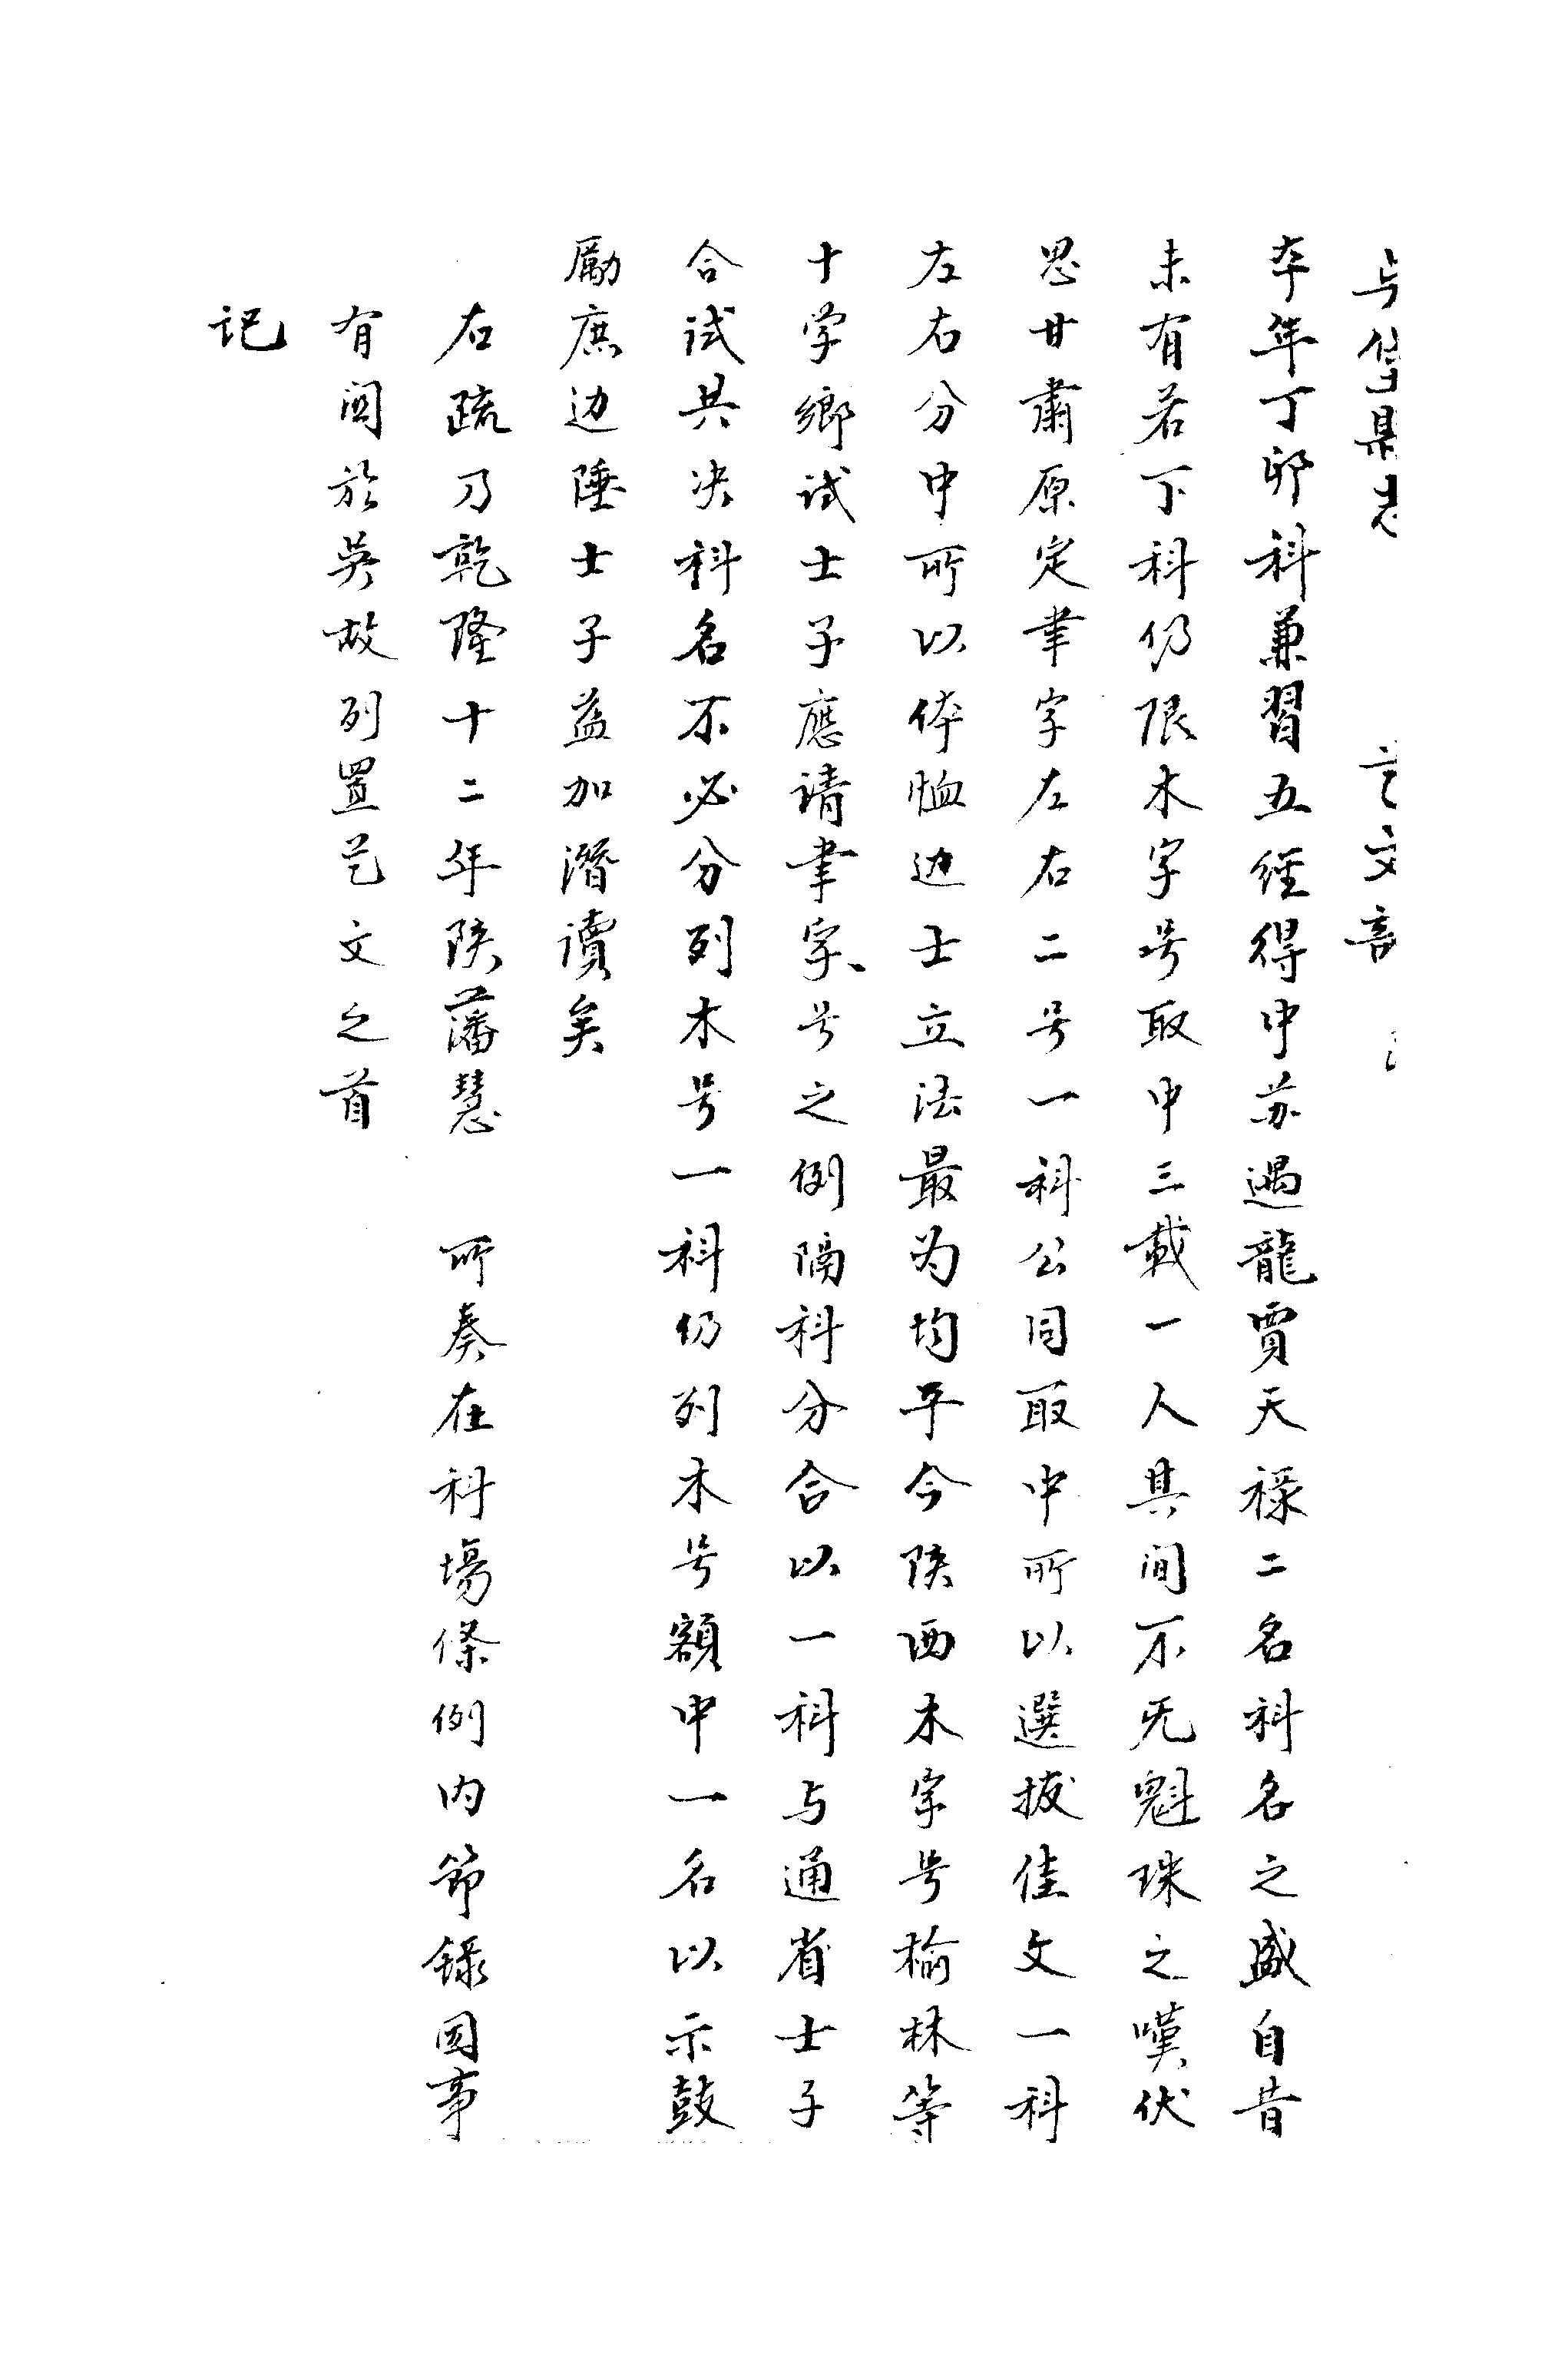 艺文
本年丁卯科兼習五経得中苏遇龍賈天祿二名科名之盛自昔
未有若下科仍限木字号取中三載一人其间不无魁珠之嘆伏
思甘肅原定聿字左右二号一科公同取中所以選拔佳文一科
左右分中所以体恤边士立法最为均平今陕西木字号榆林等
十学鄉試士子應请聿字号之例隔科分合以一科与通省士子
合试共决科名不必分列木号一科仍列木号额中一名以示鼓
勵庶边陲士子益加潛讀矣
右疏乃乾隆十二年陕藩慧 所奏在科場條例内節録因事
有闗於吴故列置艺文之首
记